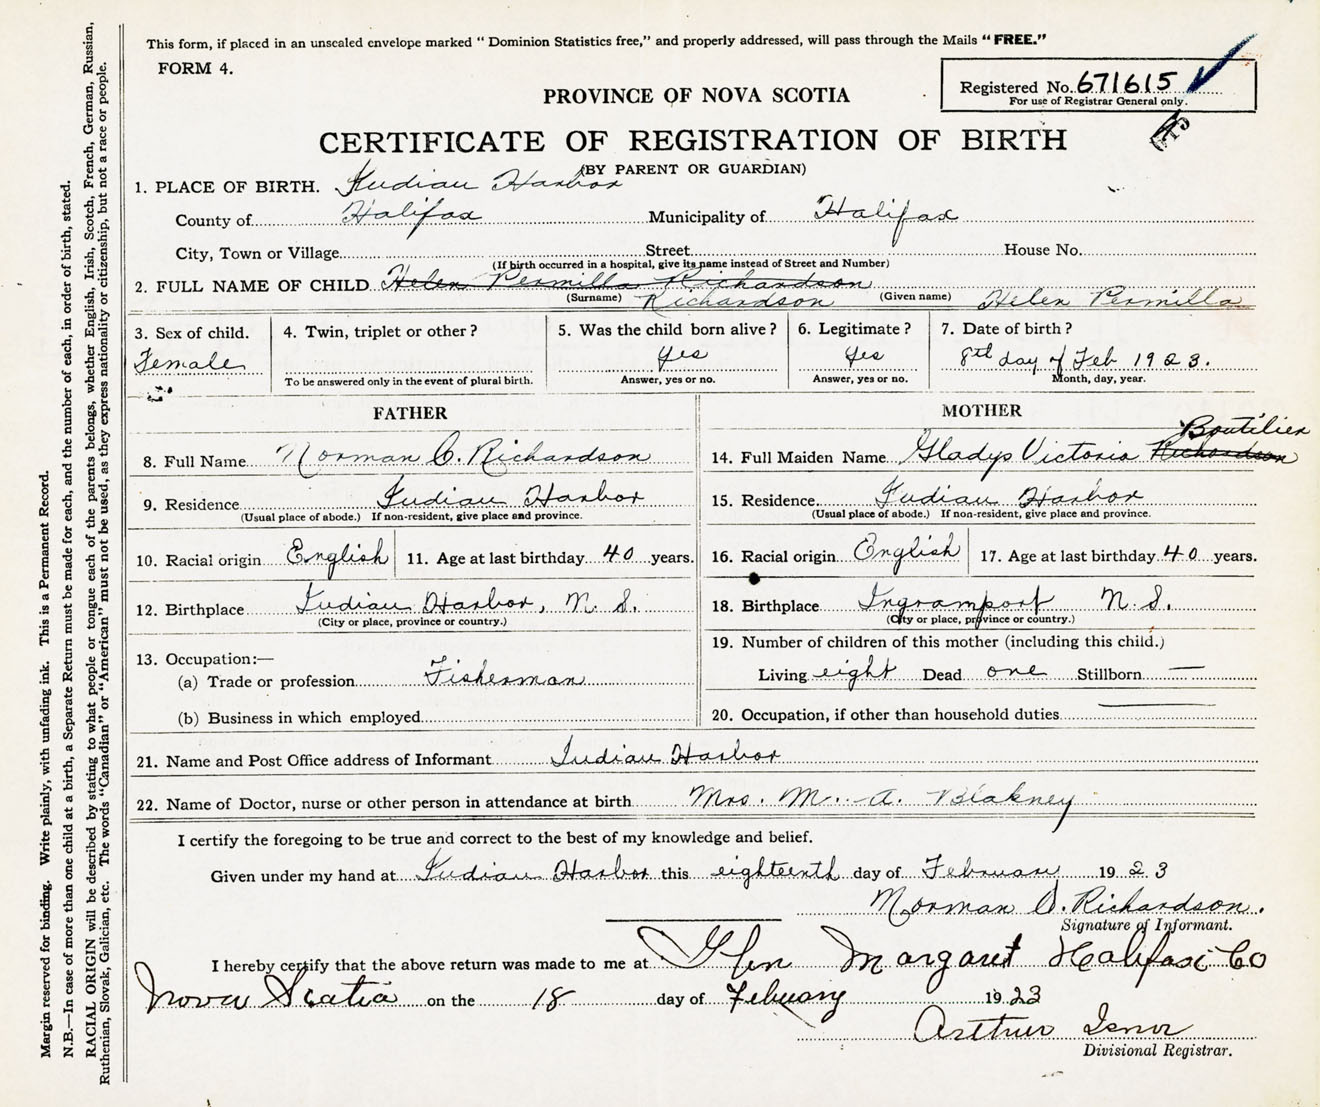 This form, if placed in an unscaled envelope marked "Dominion Statistics free," and properly addressed, will pass through the Mails "FREE."
FORM 4.
Registered No. 671615
For use of Registrar General only.
PROVINCE OF NOVA SCOTIA
CERTIFICATE OF REGISTRATION OF BIRTH
(BY PARENT OR GUARDIAN)
1. PLACE OF BIRTH. Indian Harbor
County of Halifax Municipality of Halifax
City, Town or Village Street House No.
(If birth occurred in a hospital, give its name instead of Street and Number)
2. FULL NAME OF CHILD Helen Permilla Richardson
(Surname) Richardson (Given name) Helen Permilla
3. Sex of child. 4. Twin, triplet or other? 5. Was the child born alive? 6. Legitimate? 7. Date of birth?
Female yes yes 8th day of Feb 1923.
To be answered only in the event of plural birth. Answer, yes or no. Answer, yes or no. Month, day, year.
FATHER MOTHER
Boutilier
8. Full Name Norman C. Richardson 14. Full Maiden Name Gladys Victoria Richardson
9. Residence Indian Harbor 15. Residence Indian Harbor
(Usual place of abode.) If non-resident, give place and province. (Usual place of abode.) If non-resident, give place and province.
10. Racial origin English 11. Age at last birthday 40 years. 16. Racial origin English 17. Age at last birthday 40 years.
12. Birthplace Indian Harbor, N. S. 18. Birthplace Ingramport N. S.
(City or place, province or country.) (City or place, province or country.)
13. Occupation:— 19. Number of children of this mother (including this child.)
(a) Trade or profession Fisherman Living eight Dead one Stillborn —
(b) Business in which employed 20. Occupation, if other than household duties —
21. Name and Post Office address of Informant Indian Harbor
22. Name of Doctor, nurse or other person in attendance at birth Mrs. M. A. Blakney
I certify the foregoing to be true and correct to the best of my knowledge and belief.
Given under my hand at Indian Harbor this eighteenth day of Februau 1923
Norman C. Richardson.
Signature of Informant.
I hereby certify that the above return was made to me at Glen Margaret Halifax Co
Nova Scotia on the 18 day of Febuary 1923
Arthur Isnor
Divisional Registrar.
Margin reserved for binding. Write plainly, with unfading ink. This is a Permanent Record.
N.B.—In case of more than one child at a birth, a Separate Return must be made for each, and the number of each, in order of birth, stated.
RACIAL ORIGIN will be described by stating to what people or tongue each of the parents belongs, whether English, Irish, Scotch, French, German, Russian,
Ruthenian, Slovak, Galician, etc. The words "Canadian" or "American" must not be used, as they express nationality or citizenship, but not a race or people.